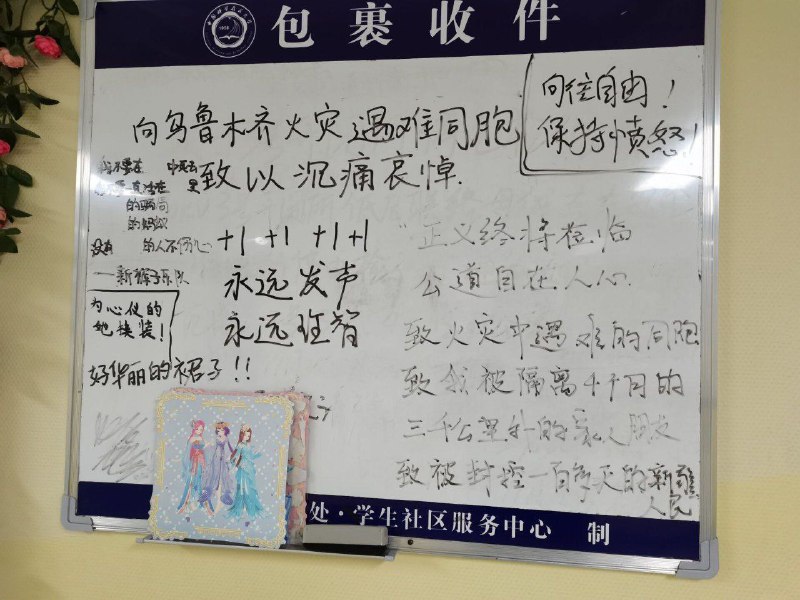 包裹收件
向往自由！
保持愤怒！
向乌鲁木齐火灾遇难同胞
致以沉痛哀悼.
的人不伤心
——新裤子乐队
+1 +1 +1 +1
永远发声
永远理智
为心仪的
她换装！
好华丽的裙子!!
正义终将莅临
公道自在人心.
致火灾中遇难的同胞
致我被隔离4个月的
三千公里外的家人朋友
致被封控一百多天的新疆
人民
处·学生社区服务中心 制